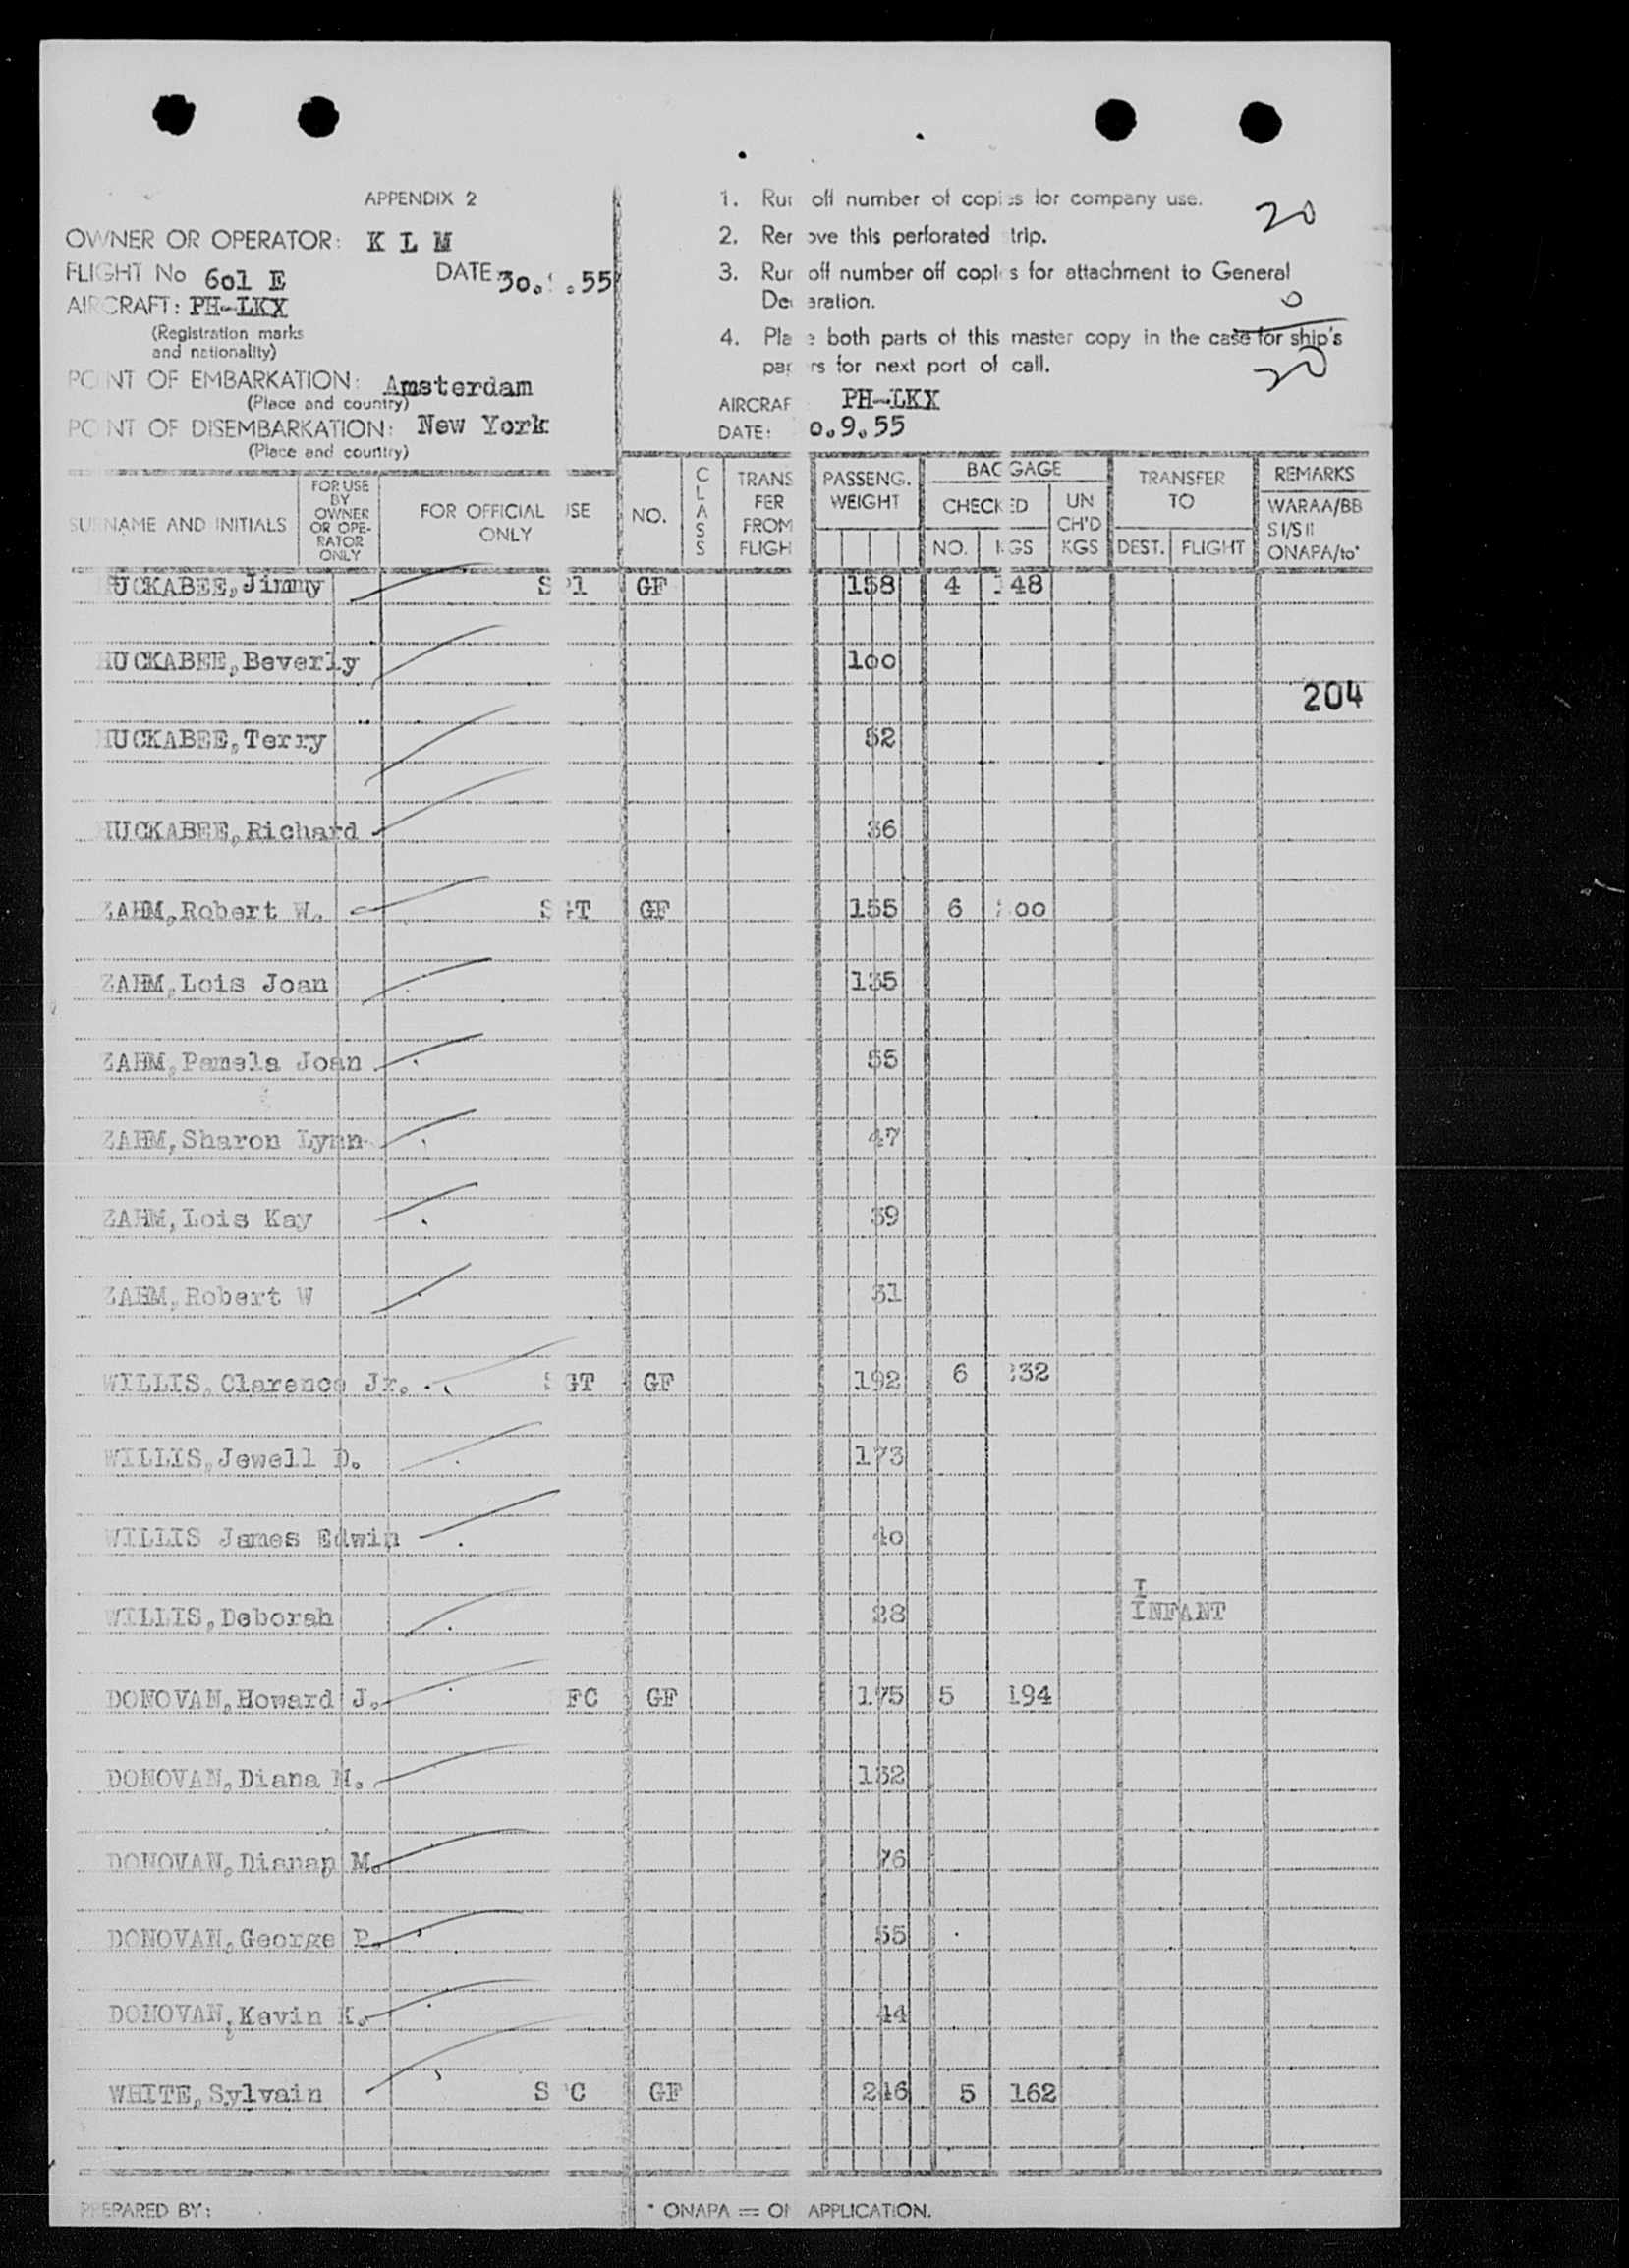 APPENDIX 2
OWNER OR OPERATOR: K L M
FLIGHT No 601 E DATE: 30. .55
AIRCRAFT: PH-LKX
(Registration marks
and nationality)
POINT OF EMBARKATION: Amsterdam
(Place and country)
POINT OF DISEMBARKATION: New York
(Place and country)
1. Run off number of copies for company use.
20
2. Remove this perforated strip.
3. Run off number off copies for attachment to General
Declaration.
0
4. Place both parts of this master copy in the case for ship's
papers for next port of call.
20
AIRCRAF PH-LKX
DATE: 0.9.55
SURNAME AND INITIALS FOR USE BY OWNER OR OPERATOR ONLY FOR OFFICIAL USE ONLY NO. CLASS TRANSFER FROM FLIGH PASSENG. WEIGHT BAGGAGE CHECKED NO. KGS UN CH'D KGS TRANSFER TO DEST. FLIGHT REMARKS WARAA/BB SI/SII ONAPA/to*
HUCKABEE, Jimmy SP1 GF 158 4 148
HUCKABEE, Beverly 100
204
HUCKABEE, Terry 52
HUCKABEE, Richard 36
ZAHM, Robert W. SGT GF 155 6 00
ZAHM, Lois Joan 135
ZAHM, Pamela Joan 55
ZAHM, Sharon Lynn 47
ZAHM, Lois Kay 39
ZAHM, Robert W 31
WILLIS, Clarence Jr. SGT GF 192 6 32
WILLIS, Jewell D. 173
WILLIS James Edwin 40
I
WILLIS, Deborah 28 INFANT
DONOVAN, Howard J. FC GF 175 5 194
DONOVAN, Diana M. 132
DONOVAN, Dianap M. 76
DONOVAN, George P. 55
DONOVAN, Kevin K. 44
WHITE, Sylvain S C GF 246 5 162
PREPARED BY:
* ONAPA = ON APPLICATION.